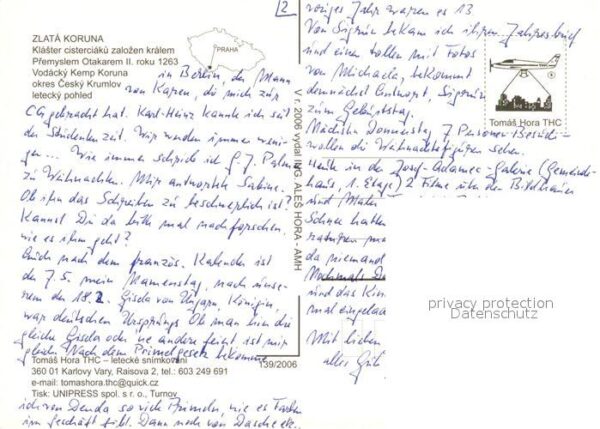 2
ZLATÁ KORUNA
Klášter cisterciáků založen králem
Přemyslem Otakarem II. roku 1263
Vodácký Kemp Koruna
okres Český Krumlov
letecký pohled
PRAHA
in Berlin, der Mann
von Karen, die mich zur
CG gebracht hat. Karl-Heinz kannte ich seit
der Studentenzeit. Wir werden immer weni-
ger... Wie immer schrieb ich G J. Palme
zu Weihnachten. Mir antwortete Sabine.
Ob ihm das Schreiben zu beschwerlich ist?
Kannst Du da bitte mal nachforschen,
wie es ihm geht?
Auch nach dem französ. Kalender ist
der 7.5. mein Namenstag, nach unse-
rem der 18.2. Gisela von Ungarn, Königin,
war deutschen Ursprungs Ob man hier die
gleiche Gisela oder ne andere feiert, ist mir
gleich. Nach dem Primelgesetz bekomme
Tomáš Hora THC – letecké snímkování
360 01 Karlovy Vary, Raisova 2, tel.: 603 249 691
e-mail: tomashora.thc@quick.cz
Tisk: UNIPRESS spol. s r. o., Turnov
139/2006
ich von Denda so viele Primeln, wie es Farben
im Geschäft gibt. Dann noch von
V r. 2006 vydal ING. ALEŠ HORA - AMH
voriges Jahr waren es 13
Von Sigrun bekam ich ihren Jahresbrief
und einen tollen mit Fotos
von Michaela, bekommt
demnächst Antwort, Sigrun
zum Geburtstag.
Nächsten Donnerstag 7 Personen Besuch
wollen die Weihnachtsfiguren sehen.
Heute in der Josef-Adamec-Galerie (Gemeinde-
haus, 1. Etage) 2 Filme über den Bildhauer
und Maler
Schnee hatten
da niemand
Nochmals
und das
mal eingela
Mit lieben
alles Gute
Tomáš Hora THC
privacy protection
Datenschutz